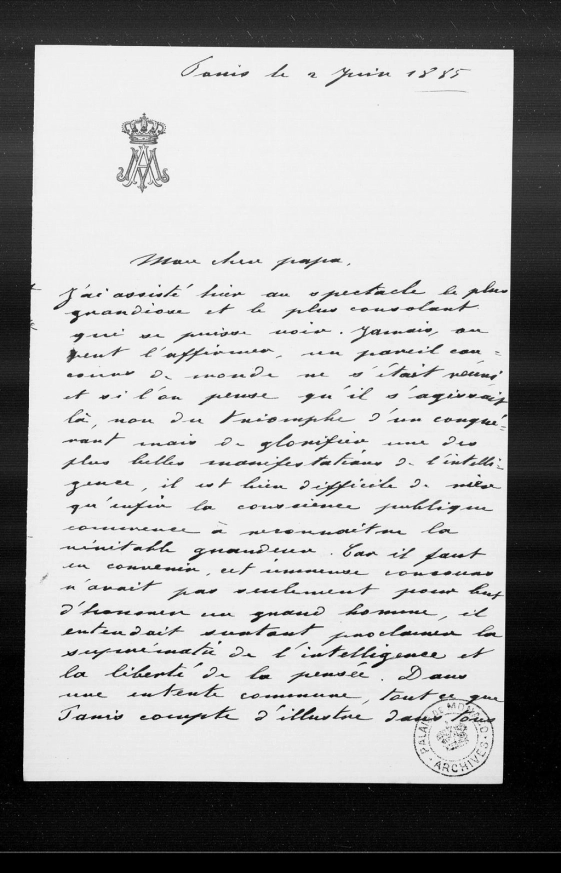 Paris le 2 Juin 1885
Mon cher papa,
J'ai assisté hier au spectacle le plus
grandiose et le plus consolant
qui se puisse voir. Jamais, on
peut l'affirmer, un pareil con-
cours de monde ne s'était réuni
et si l'on pense qu'il s'agissait
là, non du triomphe d'un conqué-
rant mais de glorifier une des
plus belles manifestations de l'intelli-
gence, il est bien difficile de nier
qu'enfin la conscience publique
commence à reconnaître la
véritable grandeur. Car il faut
en convenir, cet immense concours
n'avait pas seulement pour but
d'honorer un grand homme, il
entendait surtout proclamer la
suprématie de l'intelligence et
la liberté de la pensée. Dans
une entente commune, tout ce que
Paris compte d'illustre dans tous
PALAIS DE MONACO
ARCHIVES